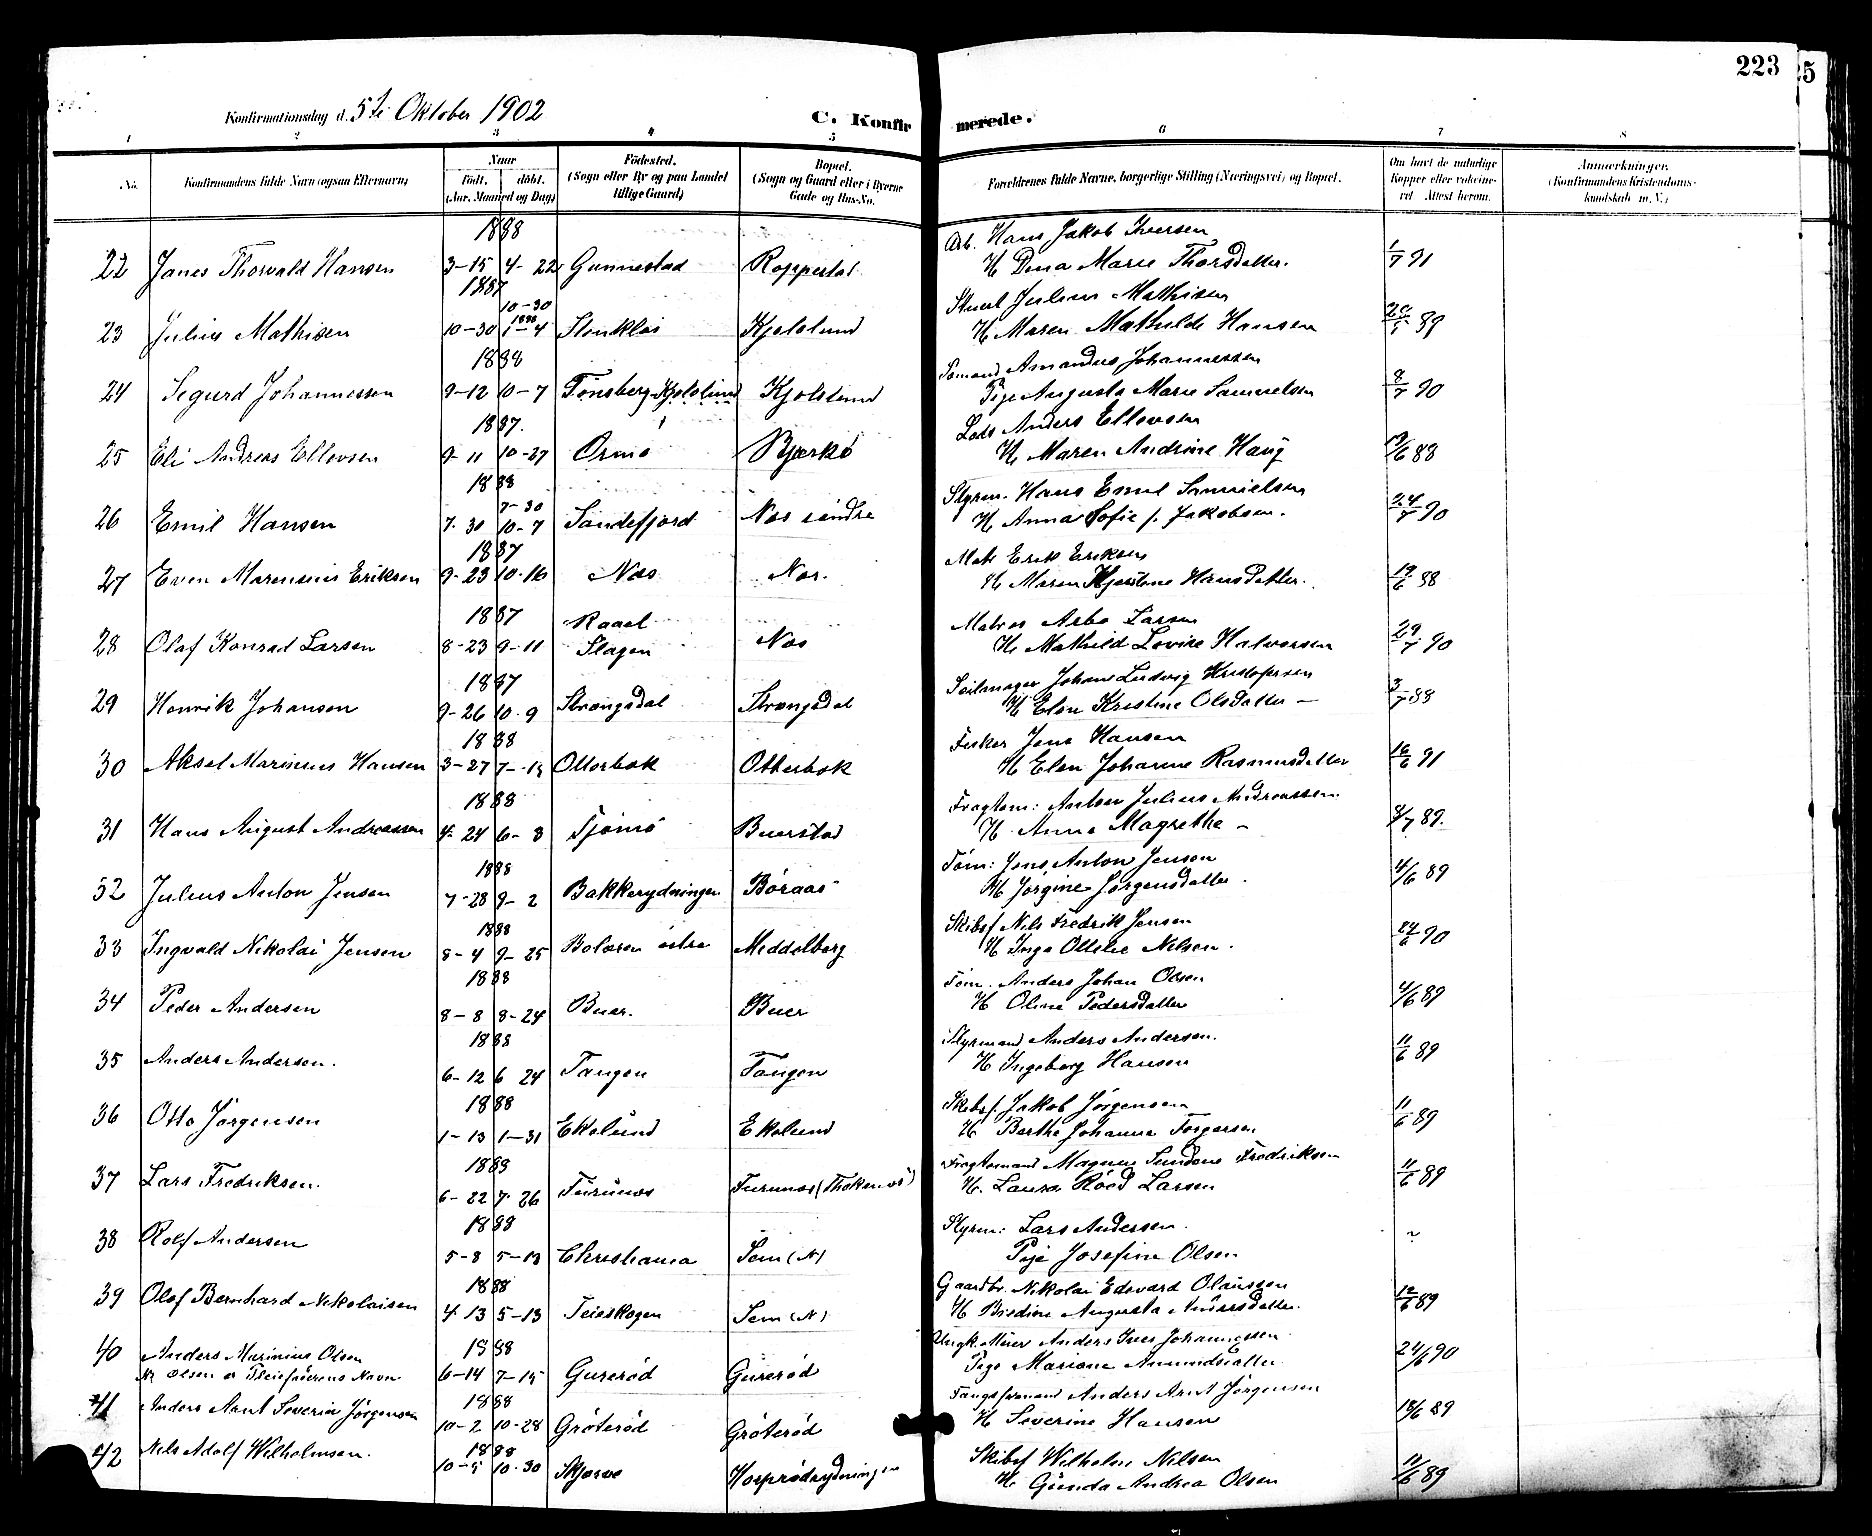 223
25
Konfirmationsdag d. 5te Oktober 1902
C. Konfirmerede.
1 2 3 4 5 6 7 8
No. Konfirmandens fulde Navn (ogsaa Efternavn) Naar Födt. döbt. (Aar, Maaned og Dag) Födested. (Sogn eller By og paa Landet tillige Gaard) Bopæl. (Sogn og Gaard eller i Byerne Gade og Hus-No. Forældrenes fulde Navne, borgerlige Stilling (Næringsvei) og Bopæl. Om havt de naturlige Kopper eller vakcineret. Attest herom. Anmærkninger. (Konfirmandens Kristendomskundskab m. V.)
1888 Arb. Hans Jakob Iversen
22 Janes Thorvald Hansen 3-15 4-22 Gunnestad Roppestad H Dina Marie Thorsdatter. 1/7 91
1887 10-30 Julius Mathisen
23 Julius Mathisen 10-30 1898 1-4 Kjolslund H. Maren Mathilde Hansen 89
1888 Sömand Amandus Johannessen
24 Sigurd Johannessen 9-12 10-7 Tönsberg Kjolslund Kjolslund Pige Augusta Marie Samuelsen 8/7 90
1887. Lods Anders Ellevsen
25 Eli Andreas Ellevsen 9-11 10-27 Ormö Bjerkö H. Maren Andrine Haug 19/6 88
1888 7-30 Styrm. Hans Emil Samuelsen
26 Emil Hansen 7-30 10-7 Sandefjord Nes söndre H Anna Sofie f. Jakobsen. 24/7 90
1887 Mat. Erik Eriksen
27 Even Marensius Eriksen 9-23 10-16 Nes Nes. H Maren Kjerstine Hansdatter. 19/6 88
1887 Raael Matros Asbo Larsen
28 Olaf Konrad Larsen 8-23 9-11 Slagen Nes H. Mathild Lovise Halvorsen 29/7 90
1887 Seilmager Johan Ludvig Kristofersen
29 Henrik Johansen 9-26 10-9 Strængsdal Strængsdal H Elen Kristine Olsdatter — 3/7 88
1888 Fisker Jens Hansen
30 Aksel Marinius Hansen 3-27 7-15 Otterbek Otterbek H Elen Johanne Rasmusdatter 16/6 91
1888 Fragtem: Anton Julius Andreassen
31 Hans August Andreassen 4-24 6-3 Tjömö Buerstad H. Anna Magrethe — 2/7 89.
1888 Töm: Jens Anton Jensen
32 Julius Anton Jensen 7-28 9-2 Bakkerydningen Böraas H Jorgine Jörgensdatter. 4/6 89
1888 Skibsf Nils Fredrik Jensen
33 Ingvald Nikolai Jensen 8-4 9-25 Bolæren östre Meddelborg H Inga Ottilie Nilsen. 24/6 90
1888 Töm. Anders Johan Olsen
34 Peder Andersen 8-8 8-24 Buer. Buer H Oline Pedersdatter 4/6 89
1888 Styrmand Anders Andersen.
35 Anders Andersen. 6-12 6 24 Tangen Tangen H Ingeborg Hansen 11/6 89
1888 Skibsf. Jakob Jörgensen
36 Otto Jörgensen 1-13 1-31 Ekelund Ekelund H Berthe Johanne Torgersen 11/6 89
1888 Fragtemand Magnus Sundene Fredriksen
37 Lars Fredriksen. 6-22 7-26 Furunes Furunes (Thokenes) H. Laura Röed Larsen 11/6 89
1888 Styrm: Lars Andersen.
38 Rolf Andersen 5-8 5-13 Christiania Sem (N) Pige Josefine Olsen ~
1888 Gaardbr. Nikolai Edvard Olaussen
39 Olaf Bernhard Nikolaisen 4-13 5-13 Teieskogen Sem (N) H Bredine Augusta Andersdatter. 12/6 89
1888 Ungk. Murer Anders Ivers Johannessen
40 Anders Marinius Olsen
N. Olsen er Pleiefaderens Navn 6-14 7-15 Gurerød Gurerød Pige Mariane Amundsdatter 24/6 90
1888 Fangstmand Anders Arnt Jörgensen
41 Anders Arnt Severin Jörgensen 10-2 10-28 Gröteröd Gröteröd H Severine Hansen 18/6 89
1888 Skibsf Wilhelm Nilsen
42 Nils Adolf Wilhelmsen. 10-5 10-30 Skjerve Horprödrydningen H. Gunda Andrea Olsen 11/6 89